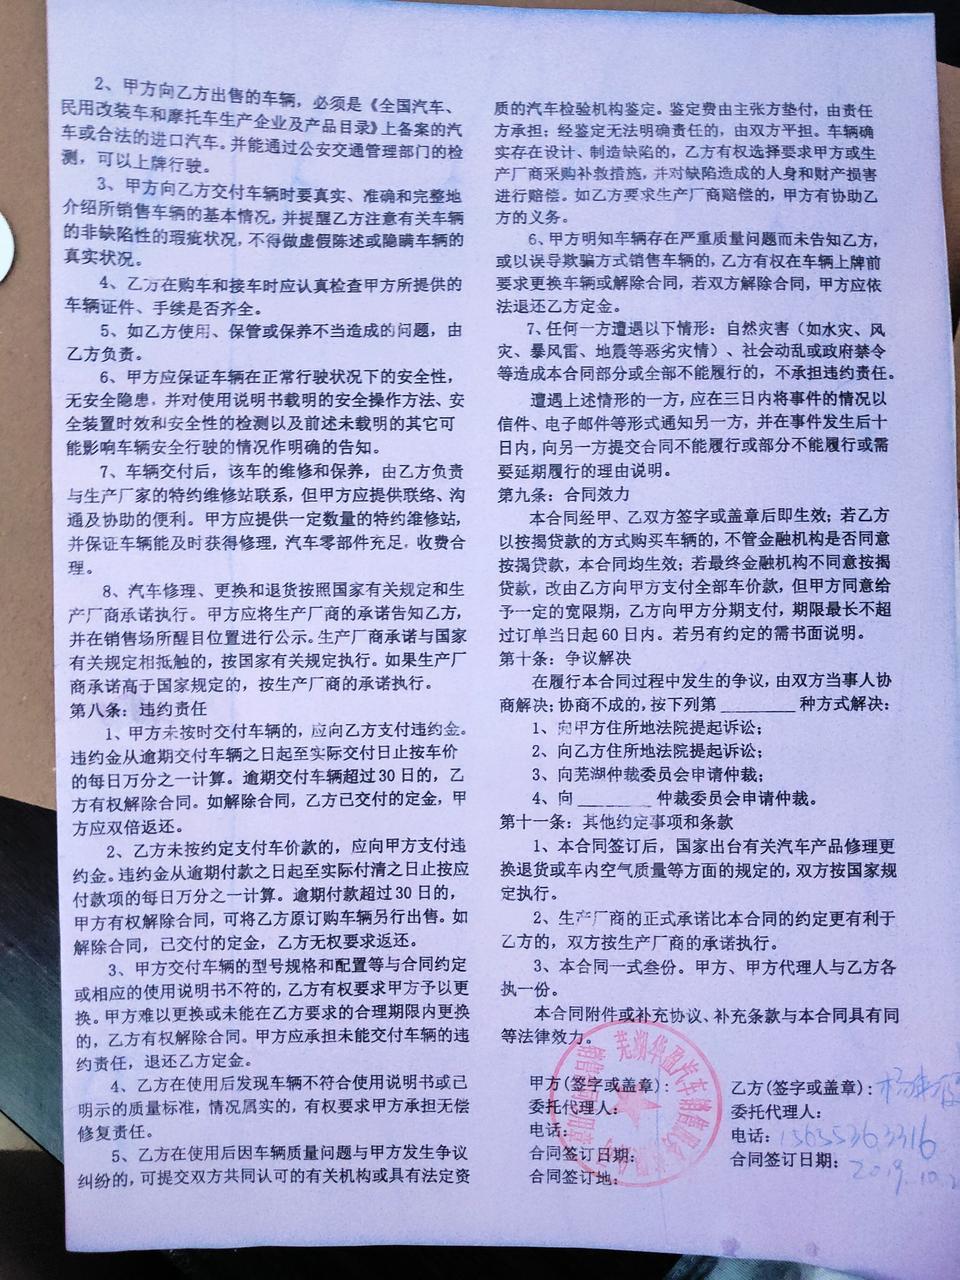 2、甲方向乙方出售的车辆，必须是《全国汽车、
民用改装车和摩托车生产企业及产品目录》上备案的汽
车或合法的进口汽车。并能通过公安交通管理部门的检
测，可以上牌行驶。
3、甲方向乙方交付车辆时要真实、准确和完整地
介绍所销售车辆的基本情况，并提醒乙方注意有关车辆
的非缺陷性的瑕疵状况，不得做虚假陈述或隐瞒车辆的
真实状况。
4、乙方在购车和接车时应认真检查甲方所提供的
车辆证件、手续是否齐全。
5、如乙方使用、保管或保养不当造成的问题，由
乙方负责。
6、甲方应保证车辆在正常行驶状况下的安全性，
无安全隐患，并对使用说明书载明的安全操作方法、安
全装置时效和安全性的检测以及前述未载明的其它可
能影响车辆安全行驶的情况作明确的告知。
7、车辆交付后，该车的维修和保养，由乙方负责
与生产厂家的特约维修站联系，但甲方应提供联络、沟
通及协助的便利。甲方应提供一定数量的特约维修站，
并保证车辆能及时获得修理，汽车零部件充足，收费合
理。
8、汽车修理、更换和退货按照国家有关规定和生
产厂商承诺执行。甲方应将生产厂商的承诺告知乙方，
并在销售场所醒目位置进行公示。生产厂商承诺与国家
有关规定相抵触的，按国家有关规定执行。如果生产厂
商承诺高于国家规定的，按生产厂商的承诺执行。
第八条：违约责任
1、甲方未按时交付车辆的，应向乙方支付违约金。
违约金从逾期交付车辆之日起至实际交付日止按车价
的每日万分之一计算。逾期交付车辆超过30日的，乙
方有权解除合同。如解除合同，乙方已交付的定金，甲
方应双倍返还。
2、乙方未按约定支付车价款的，应向甲方支付违
约金。违约金从逾期付款之日起至实际付清之日止按应
付款项的每日万分之一计算。逾期付款超过30日的，
甲方有权解除合同，可将乙方原订购车辆另行出售。如
解除合同，已交付的定金，乙方无权要求返还。
3、甲方交付车辆的型号规格和配置等与合同约定
或相应的使用说明书不符的，乙方有权要求甲方予以更
换。甲方难以更换或未能在乙方要求的合理期限内更换
的，乙方有权解除合同。甲方应承担未能交付车辆的违
约责任，退还乙方定金。
4、乙方在使用后发现车辆不符合使用说明书或已
明示的质量标准，情况属实的，有权要求甲方承担无偿
修复责任。
5、乙方在使用后因车辆质量问题与甲方发生争议
纠纷的，可提交双方共同认可的有关机构或具有法定资
质的汽车检验机构鉴定。鉴定费由主张方垫付，由责任
方承担；经鉴定无法明确责任的，由双方平担。车辆确
实存在设计、制造缺陷的，乙方有权选择要求甲方或生
产厂商采购补救措施，并对缺陷造成的人身和财产损害
进行赔偿。如乙方要求生产厂商赔偿的，甲方有协助乙
方的义务。
6、甲方明知车辆存在严重质量问题而未告知乙方，
或以误导欺骗方式销售车辆的，乙方有权在车辆上牌前
要求更换车辆或解除合同，若双方解除合同，甲方应依
法退还乙方定金。
7、任何一方遭遇以下情形：自然灾害（如水灾、风
灾、暴风雷、地震等恶劣灾情）、社会动乱或政府禁令
等造成本合同部分或全部不能履行的，不承担违约责任。
遭遇上述情形的一方，应在三日内将事件的情况以
信件、电子邮件等形式通知另一方，并在事件发生后十
日内，向另一方提交合同不能履行或部分不能履行或需
要延期履行的理由说明。
第九条：合同效力
本合同经甲、乙双方签字或盖章后即生效；若乙方
以按揭贷款的方式购买车辆的，不管金融机构是否同意
按揭贷款，本合同均生效；若最终金融机构不同意按揭
贷款，改由乙方向甲方支付全部车价款，但甲方同意给
予一定的宽限期，乙方向甲方分期支付，期限最长不超
过订单当日起60日内。若另有约定的需书面说明。
第十条：争议解决
在履行本合同过程中发生的争议，由双方当事人协
商解决；协商不成的，按下列第________种方式解决：
1、向甲方住所地法院提起诉讼；
2、向乙方住所地法院提起诉讼；
3、向芜湖仲裁委员会申请仲裁；
4、向________仲裁委员会申请仲裁。
第十一条：其他约定事项和条款
1、本合同签订后，国家出台有关汽车产品修理更
换退货或车内空气质量等方面的规定的，双方按国家规
定执行。
2、生产厂商的正式承诺比本合同的约定更有利于
乙方的，双方按生产厂商的承诺执行。
3、本合同一式叁份。甲方、甲方代理人与乙方各
执一份。
本合同附件或补充协议、补充条款与本合同具有同
等法律效力。
甲方(签字或盖章)：
委托代理人：
电话：
合同签订日期：
合同签订地：
芜湖华盈汽车销售服务
乙方(签字或盖章)：杨
委托代理人：
电话：15655363316
合同签订日期：2019.10.